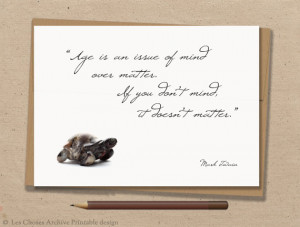 “Age is an issue of mind
over matter.
If you don't mind,
it doesn't matter.”
Mark Twain
© Les Choses Archive Printable design